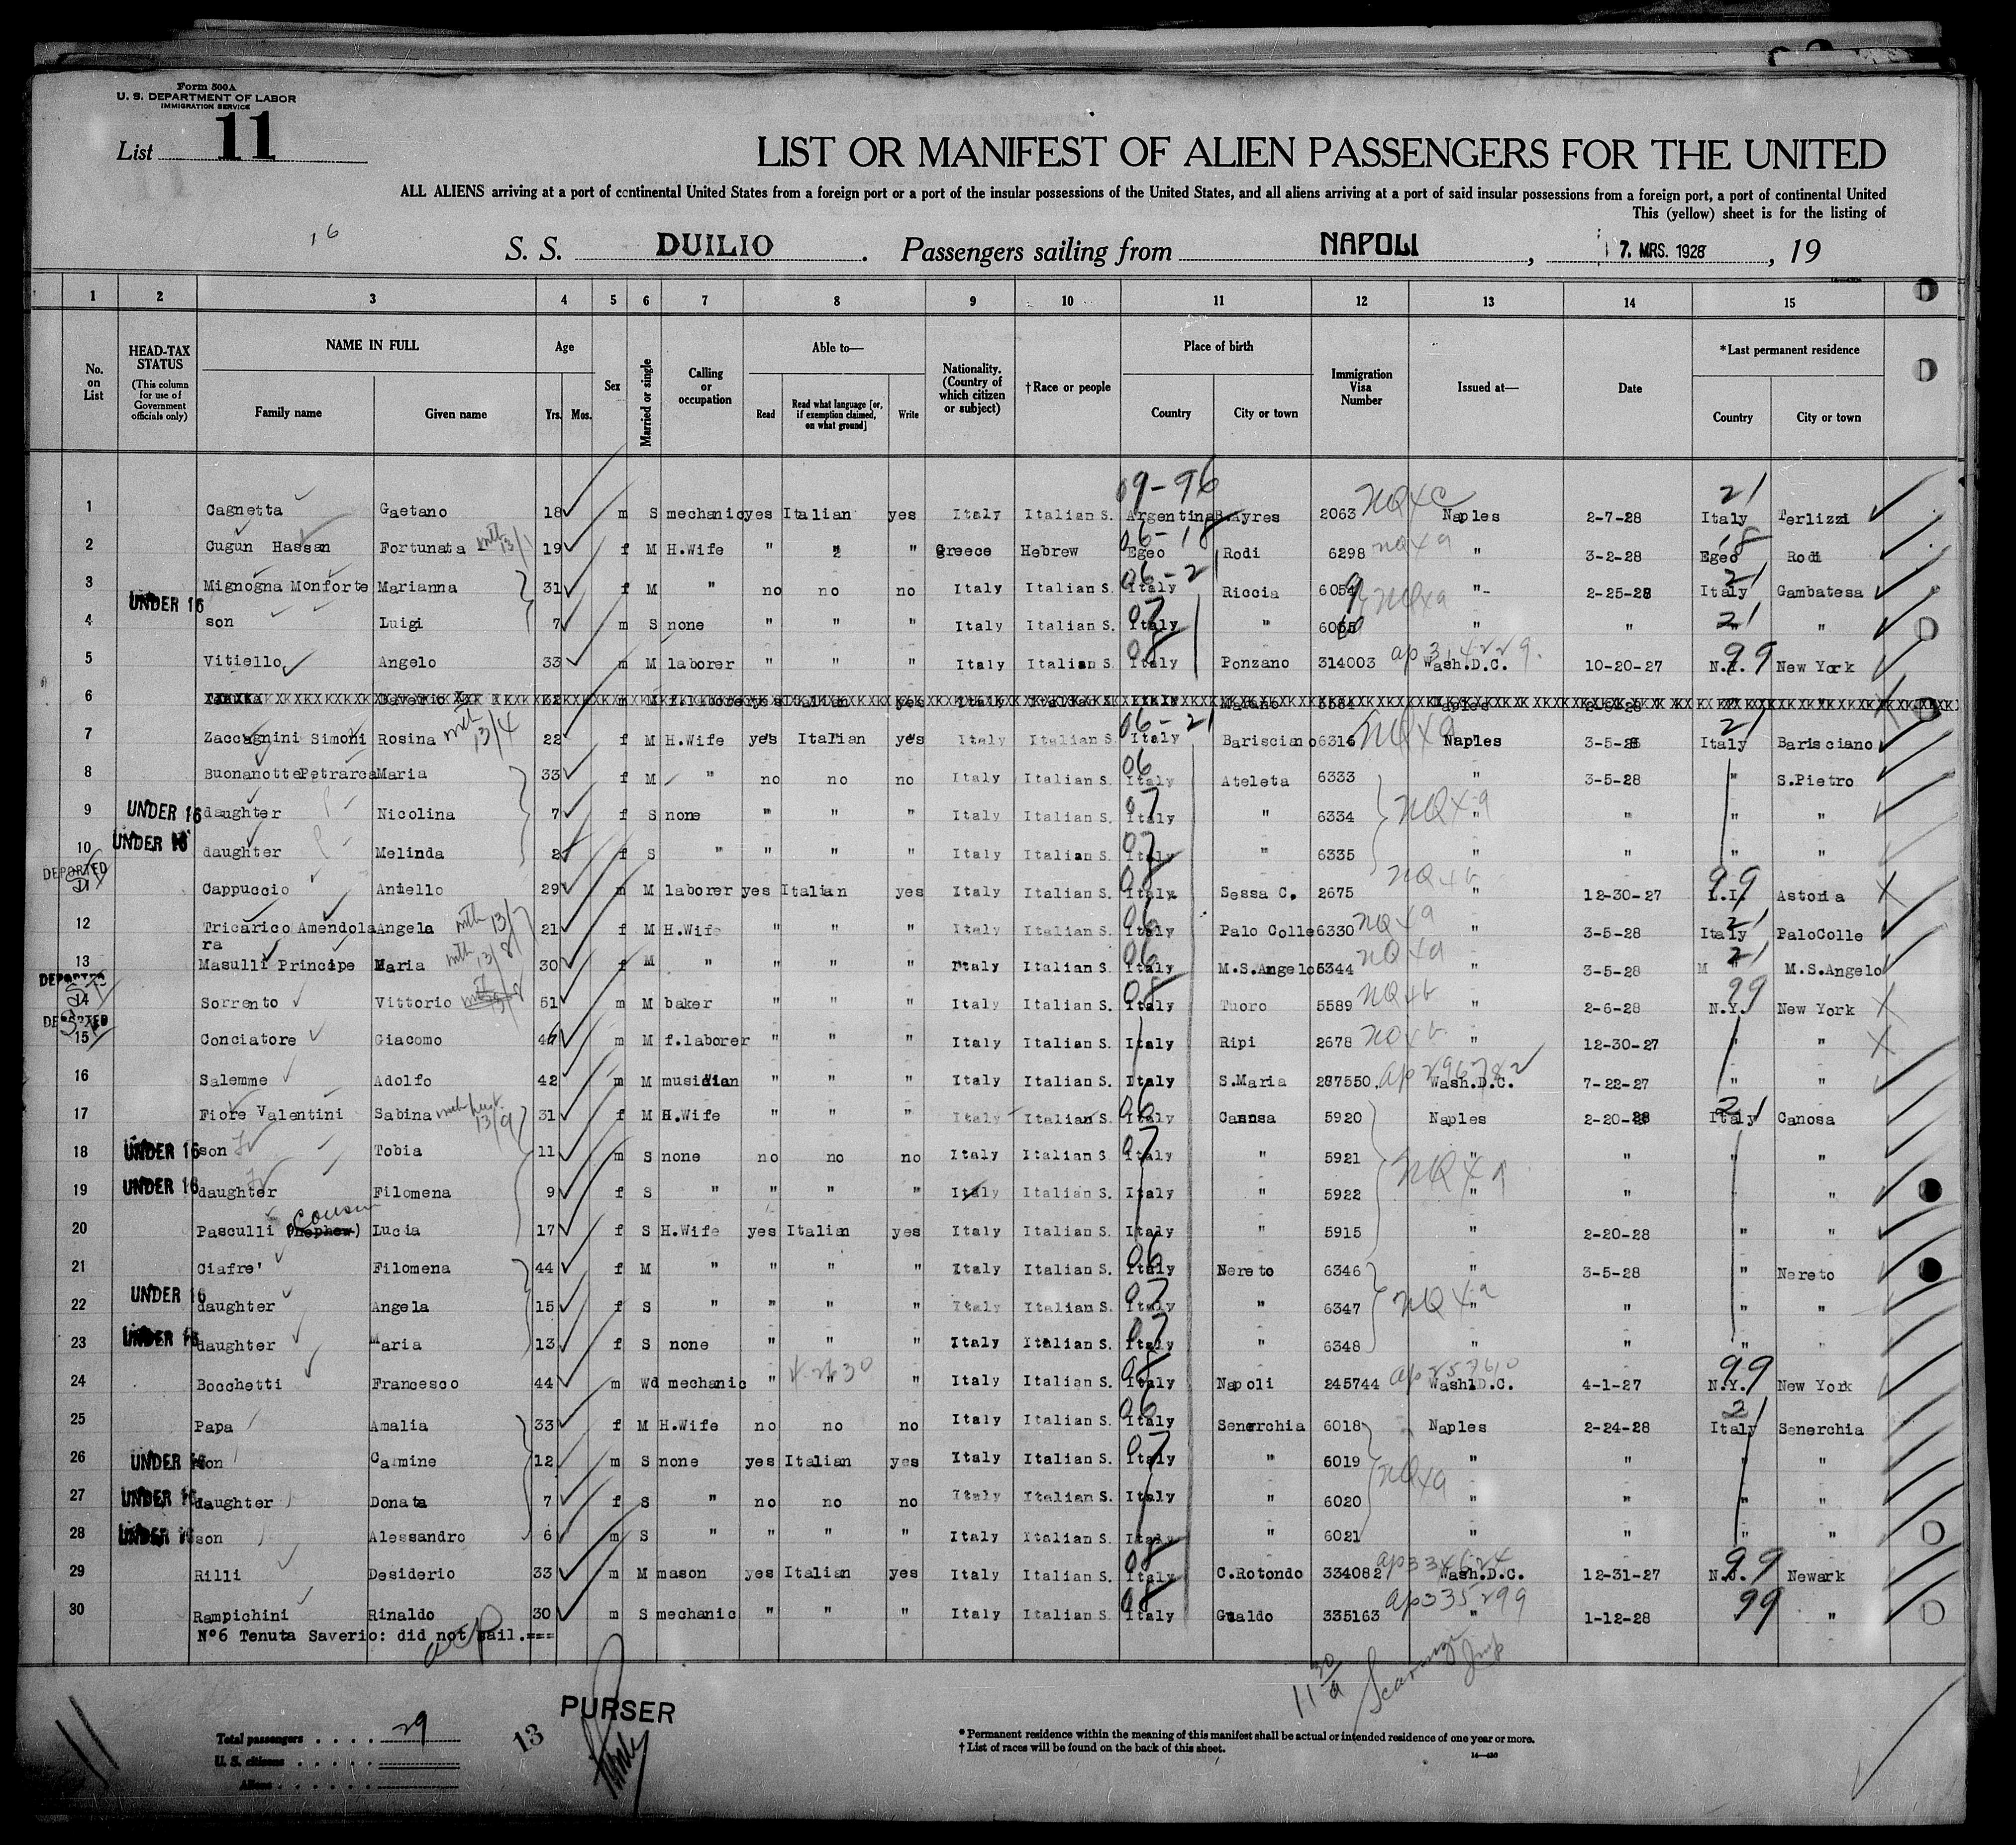 Form 500A
U. S. DEPARTMENT OF LABOR
IMMIGRATION SERVICE
List 11
LIST OR MANIFEST OF ALIEN PASSENGERS FOR THE UNITED
ALL ALIENS arriving at a port of continental United States from a foreign port or a port of the insular possessions of the United States, and all aliens arriving at a port of said insular possessions from a foreign port, a port of continental United
This (yellow) sheet is for the listing of
16
S. S. DUILIO. Passengers sailing from NAPOLI, 7. MRS. 1928, 19
1 2 3 4 5 6 7 8 9 10 11 12 13 14 15
No. on List
HEAD-TAX STATUS (This column for use of Government officials only)
NAME IN FULL
Family name Given name
Age
Yrs. Mos.
Sex
Married or single
Calling or occupation
Able to—
Read Read what language [or, if exemption claimed, on what ground] Write
Nationality. (Country of which citizen or subject)
†Race or people
Place of birth
Country City or town
Immigration Visa Number
Issued at—
Date
*Last permanent residence
Country City or town
09-96 21
1 Cagnetta Gaetano 18 m S mechanic yes Italian yes Italy Italian S. Argentina B.Ayres 2063 NQ4c Naples 2-7-28 Italy Terlizzi
06-18
2 Cugun Hassan Fortunata 13/1 19 f M H.Wife " " " Greece Hebrew Egeo Rodi 6298 NQ4a " 3-2-28 Egeo Rodi
06-21 21
3 Mignogna Monforte Marianna 31 f M " no no no Italy Italian S. Italy Riccia 6054 NQ4a "- 2-25-28 Italy Gambatesa
UNDER 16
07 21
4 son Luigi 7 m S none " " " Italy Italian S. Italy " " " " "
08 99
5 Vitiello Angelo 33 m M laborer " " " Italy Italian S. Italy Ponzano 314003 ap 314229. Wash.D.C. 10-20-27 N.Y. New York
6 Saverio 32 m M f.laborer yes Italian yes Italy Italian S. Italy Naples
06-21 21
7 Zaccagnini Simoni Rosina 13/4 22 f M H.Wife yes Italian yes Italy Italian S. Italy Barisciano 6316 NQ4a Naples 3-5-28 Italy Barisciano
06
8 Buonanotte Petrarca Maria 33 f M " no no no Italy Italian S. Italy Ateleta 6333 " 3-5-28 " S.Pietro
07
9 UNDER 16 daughter Nicolina 7 f S none " " " Italy Italian S. Italy " 6334 NQ4a " " " "
07
10 UNDER 16 daughter Melinda 2 f S " " " " Italy Italian S. Italy " 6335 " " " "
DEPORTED
08 99
11 Cappuccio Aniello 29 m M laborer yes Italian yes Italy Italian S. Italy Sessa C. 2675 NQ4b " 12-30-27 L.I. Astoria
06 21
12 Tricarico Amendola Angela 13/7 21 f M H.Wife " " " Italy Italian S. Italy Palo Colle 6330 NQ4a " 3-5-28 Italy PaloColle
ra
06 21
13 Masulli Principe Maria 13/8 30 f M " " " " Italy Italian S. Italy M.S.Angelo 5344 NQ4a " 3-5-28 " M.S.Angelo
DEPORTED
08 99
14 Sorrento Vittorio 51 m M baker " " " Italy Italian S. Italy Tuoro 5589 NQ4b " 2-6-28 N.Y. New York
DEPORTED
15 Conciatore Giacomo 47 m M f.laborer " " " Italy Italian S. Italy Ripi 2678 NQ4b " 12-30-27 " "
16 Salemme Adolfo 42 m M musician " " " Italy Italian S. Italy S.Maria 287550. ap 296782 Wash.D.C. 7-22-27 " "
06 21
17 Fiore Valentini Sabina 13/9 31 f M H.Wife " " " Italy Italian S. Italy Canosa 5920 Naples 2-20-28 Italy Canosa
07
18 UNDER 16 son Tobia 11 m S none no no no Italy Italian S Italy " 5921 " " " "
19 UNDER 16 daughter Filomena 9 f S " " " " Italy Italian S. Italy " 5922 NQ4a " " " "
cousin
20 Pasculli (nephew) Lucia 17 f S H.Wife yes Italian yes Italy Italian S. Italy " 5915 " 2-20-28 " "
06
21 Ciafre' Filomena 44 f M " " " " Italy Italian S. Italy Nereto 6346 " 3-5-28 " Nereto
07
22 UNDER 16 daughter Angela 15 f S " " " " Italy Italian S. Italy " 6347 NQ4a " " " "
07
23 UNDER 16 daughter Maria 13 f S none " " " Italy Italian S. Italy " 6348 " " " "
08 99
24 Bocchetti Francesco 44 m Wd mechanic " " " Italy Italian S. Italy Napoli 245744 ap 257610 Wash.D.C. 4-1-27 N.Y. New York
06 21
25 Papa Amalia 33 f M H.Wife no no no Italy Italian S. Italy Senerchia 6018 Naples 2-24-28 Italy Senerchia
07
26 UNDER 16 son Carmine 12 m S none yes Italian yes Italy Italian S. Italy " 6019 NQ4a " " " "
27 UNDER 16 daughter Donata 7 f S " no no no Italy Italian S. Italy " 6020 " " " "
28 UNDER 16 son Alessandro 6 m S " " " " Italy Italian S. Italy " 6021 " " " "
08 99
29 Rilli Desiderio 33 m M mason yes Italian yes Italy Italian S. Italy C.Rotondo 334082 ap 334624 Wash.D.C. 12-31-27 N.J. Newark
08 99
30 Rampichini Rinaldo 30 m S mechanic " " " Italy Italian S. Italy Gualdo 335163 ap 335299 " 1-12-28 "
N°6 Tenuta Saverio: did not sail.===
Total passengers . . . . 29
U. S. citizens . . . . .
Aliens . . . . . .
13
PURSER
* Permanent residence within the meaning of this manifest shall be actual or intended residence of one year or more.
† List of races will be found on the back of this sheet.
14—430